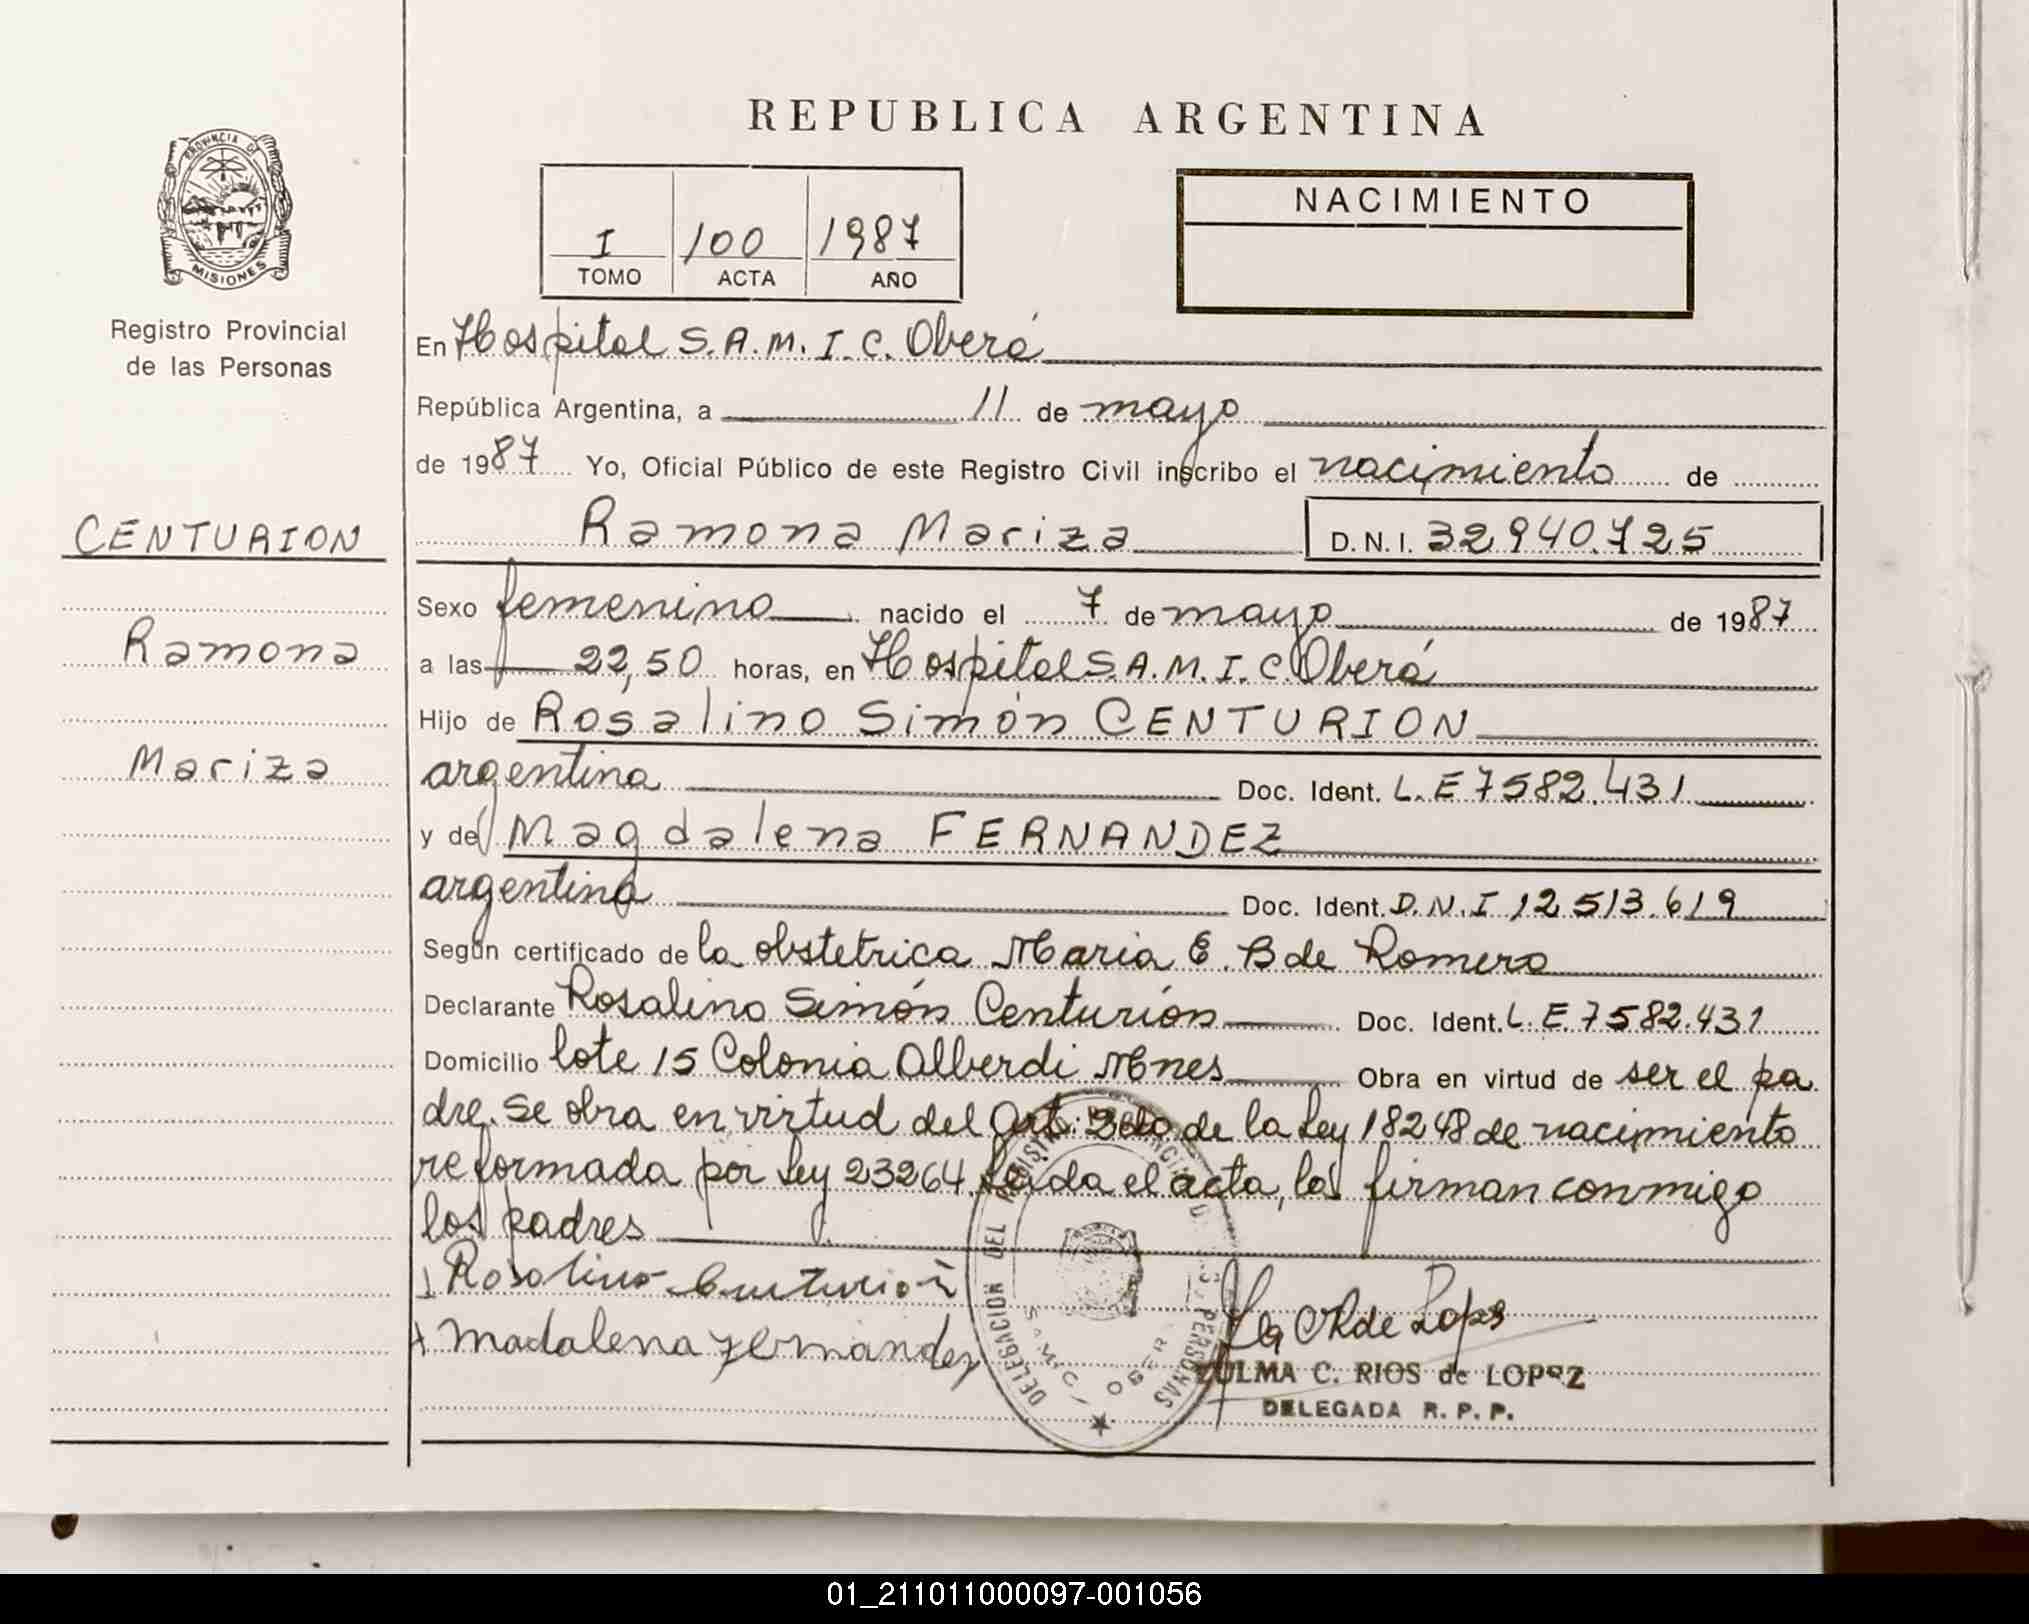 REPUBLICA ARGENTINA
PROVINCIA DE
MISIONES
Registro Provincial
de las Personas
I 100 1987
TOMO ACTA AÑO
NACIMIENTO
En Hospital S.A.M.I.C. Oberá
República Argentina, a 11 de mayo
de 1987 Yo, Oficial Público de este Registro Civil inscribo el nacimiento de
CENTURION
Ramona Mariza D.N.I. 32940.725
Sexo femenino nacido el 7 de mayo de 1987
Ramona
a las 22,50 horas, en Hospital S.A.M.I.C. Oberá
Hijo de Rosalino Simón CENTURION
Mariza
argentina Doc. Ident. L.E 7582.431
y de Magdalena FERNANDEZ
argentina Doc. Ident. D.N.I 12.513.619
Según certificado de la obstetrica Maria E. B de Romero
Declarante Rosalino Simón Centurión Doc. Ident. L.E 7582.431
Domicilio lote 15 Colonia Alberdi Mnes Obra en virtud de ser el pa
dre. Se obra en virtud del Art: de la Ley 18248 de nacimiento
reformada por Ley 23264. Leida el acta, la firman conmigo
los padres
Rosalino Centurión
Madalena Fernandez
DELEGACION DEL REGISTRO PROVINCIAL DE LAS PERSONAS
S.A.M.I.C. OBERA
ZULMA C. RIOS de LOPEZ
DELEGADA R. P. P.
01_211011000097-001056